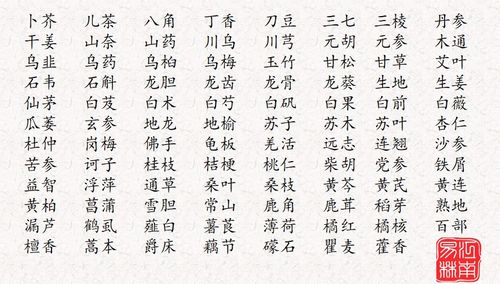 卜芥 儿茶 八角 丁香 刀豆 三七 三棱 丹参
干姜 山奈 山药 川乌 川芎 元胡 元参 木通
乌韭 乌药 乌桕 乌梅 玉竹 甘松 甘草 艾叶
石韦 石斛 龙胆 龙齿 龙骨 龙葵 生地 生姜
仙茅 白芨 白术 白芍 白矾 白果 白前 白薇
瓜蒌 玄参 地龙 地榆 苏子 苏木 苏叶 杏仁
杜仲 岗梅 佛手 龟板 羌活 远志 连翘 沙参
苦参 诃子 桂枝 桔梗 桃仁 柴胡 党参 铁屑
益智 浮萍 通草 桑叶 桑枝 黄芩 黄芪 黄连
黄柏 菖蒲 雪胆 常山 鹿角 鹿茸 稻芽 熟地
漏芦 鹤虱 薤白 薯莨 薄荷 橘红 橘核 百部
檀香 藁本 爵床 藕节 礞石 瞿麦 藿香
江南易林